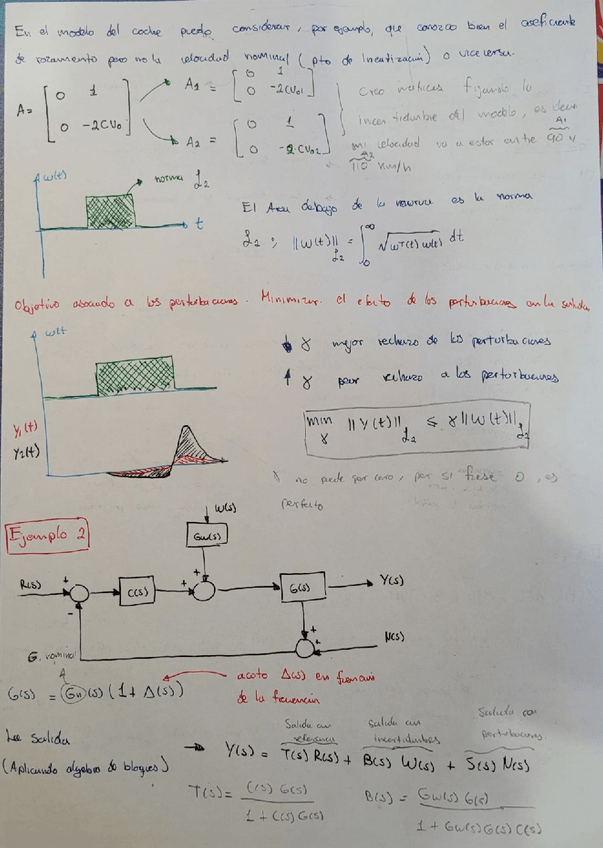 En el modelo del coche puedo considerar, por ejemplo, que conozco bien el coeficiente
de rozamiento pero no la velocidad nominal (pto de linealización) o viceversa.
A = [0 1; 0 -2CV₀]
A1 = [0 1; 0 -2CV01]
A2 = [0 1; 0 -2CV02]
Creo matrices fijando la
incertidumbre del modelo, es decir
mi velocidad va a estar entre 90 y
A1
A2
110 km/h
w(t)
norma L2
t
El Area debajo de la
es la norma
L2 : ||w(t)||L2 = ∫₀^∞ √(wT(t) w(t)) dt
Objetivo asociado a las perturbaciones. Minimizar el efecto de las perturbaciones en la salida
w(t
y1(t)
y2(t)
↓ γ mejor rechazo de las perturbaciones
↑ γ peor rechazo a las perturbaciones
min γ ||Y(t)||L2 ≤ γ||W(t)||L2
γ no puede ser cero, por si fuese 0, es
perfecto
Ejemplo 2
W(s)
Gw(s)
R(s)
+
-
C(s)
+
+
G(s)
Y(s)
+
+
N(s)
G. nominal
G(s) = Gn(s) (1 + Δ(s))
acoto Δ(s) en función
de la frecuencia
La salida
(Aplicando algebra de bloques)
Salida con
referencia
Salida con
incertidumbres
Salida con
perturbaciones
→ Y(s) = T(s) R(s) + B(s) W(s) + S(s) N(s)
T(s) = C(s) G(s) / 1 + C(s) G(s)
B(s) = Gw(s) G(s) / 1 + Gw(s) G(s) C(s)